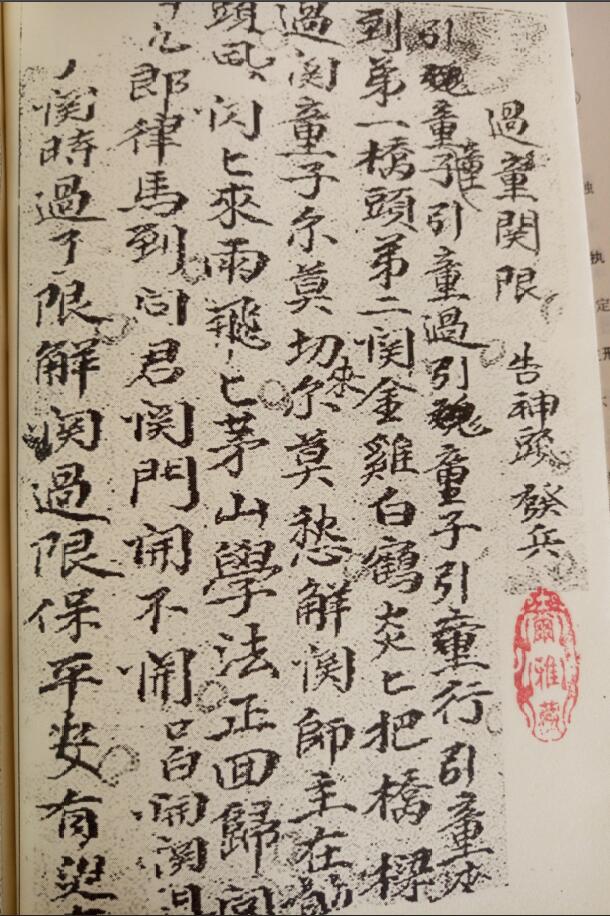 過童関限 告神頭 發兵
引魂童子引童過引魂童子引童行引童
到弟一橋頭弟二関金雞白鶴炎匕把橋樑
過関童子尔莫切尔莫愁解関師主在
閃匕來雨飛匕茅山學法正回歸
郎律馬到问君関門開不開開関
関時過了限解関過限保平安有
爾雅藏